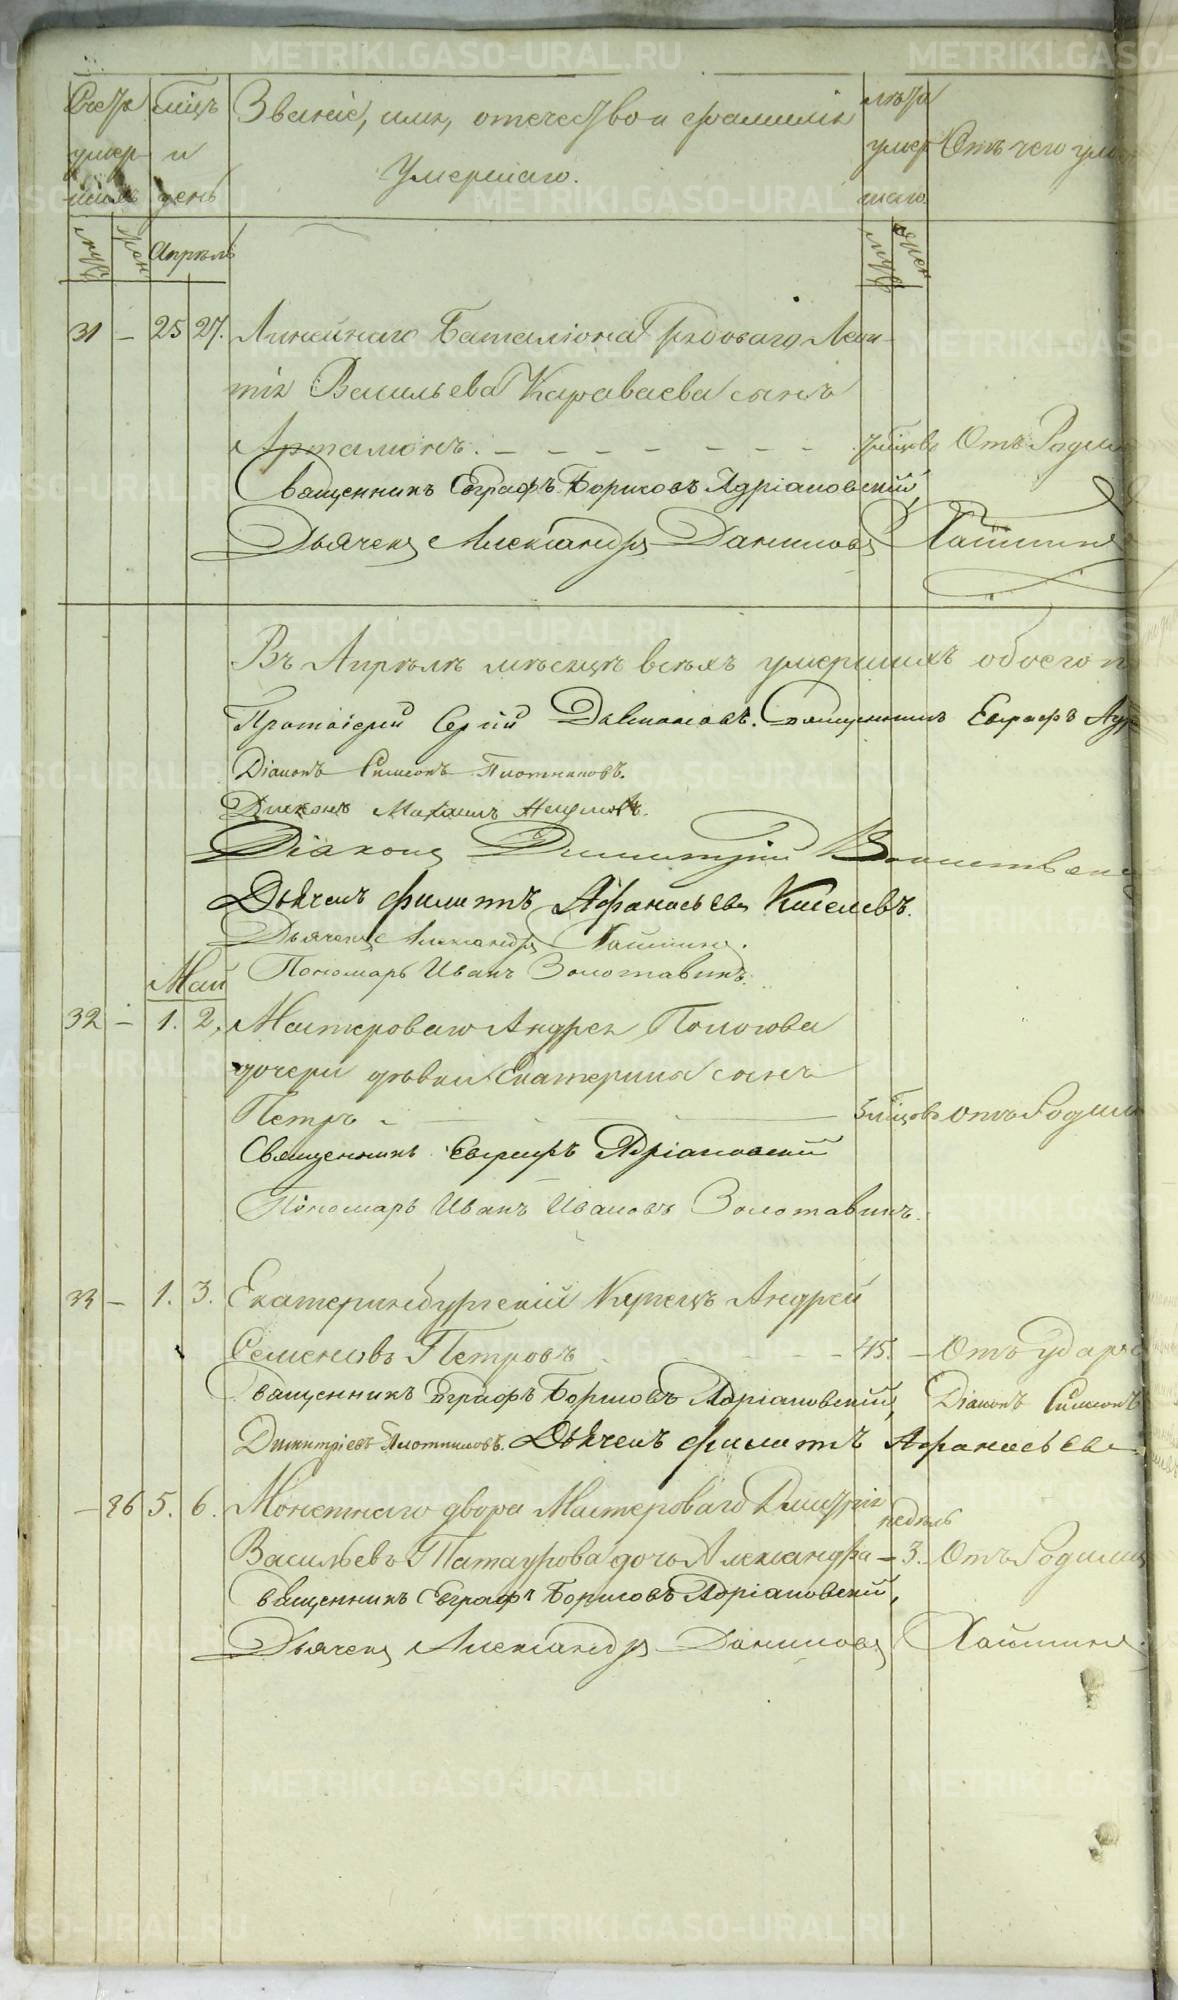 METRIKI.GASO-URAL.RU
Счетъ умер-шихъ
мцъ и день
Званіе, имя, отчество и фамилія
Умершаго.
лѣта умер шаго
Отъ чего уме
муж. жен. Апрѣль муж. жен.
31 – 25 27. Линейнаго Баталіона Рядоваго
Васильева Караваева сынъ
Артамонъ. – – – – – – – мѣсяцовъ Отъ Родим
Священникъ Евграфъ Борисовъ Адріановскій,
Дьячекъ Александръ Даниловъ
Въ Апрѣлѣ мѣсяцѣ всѣхъ умершихъ обоего п
Протоіерей Сергій Священникъ Евграфъ Адр
Діаконъ Симеонъ Плотниковъ.
Діаконъ Михаилъ
Діаконъ Димитрій
Дьячекъ Филиппъ Афанасьевъ Киселевъ.
Дьячекъ Александръ
Май Пономарь Иванъ Золотавинъ.
32 – 1. 2. Мастероваго Андрея Попова
дочери дѣвки Екатерины сынъ
Петръ – 5 мѣсяцовъ отъ Родим
Священникъ Евграфъ Адріановскій
Пономарь Иванъ Ивановъ Золотавинъ.
33 – 1. 3. Екатеринбургскій Купецъ Андрей
Семеновъ Петровъ – – – 45. – Отъ удара
Священникъ Евграфъ Борисовъ Адріановскій, Діаконъ Симеонъ
Димитріевъ Плотниковъ. Дьячекъ Филиппъ Афанасьевъ
– 26 5. 6. Монетнаго двора Мастероваго Дмитрія недѣль
Васильевъ Патаурова дочь Александра – 3. Отъ Родим
Священникъ Евграфъ Борисовъ Адріановскій,
Дьячекъ Александръ Даниловъ